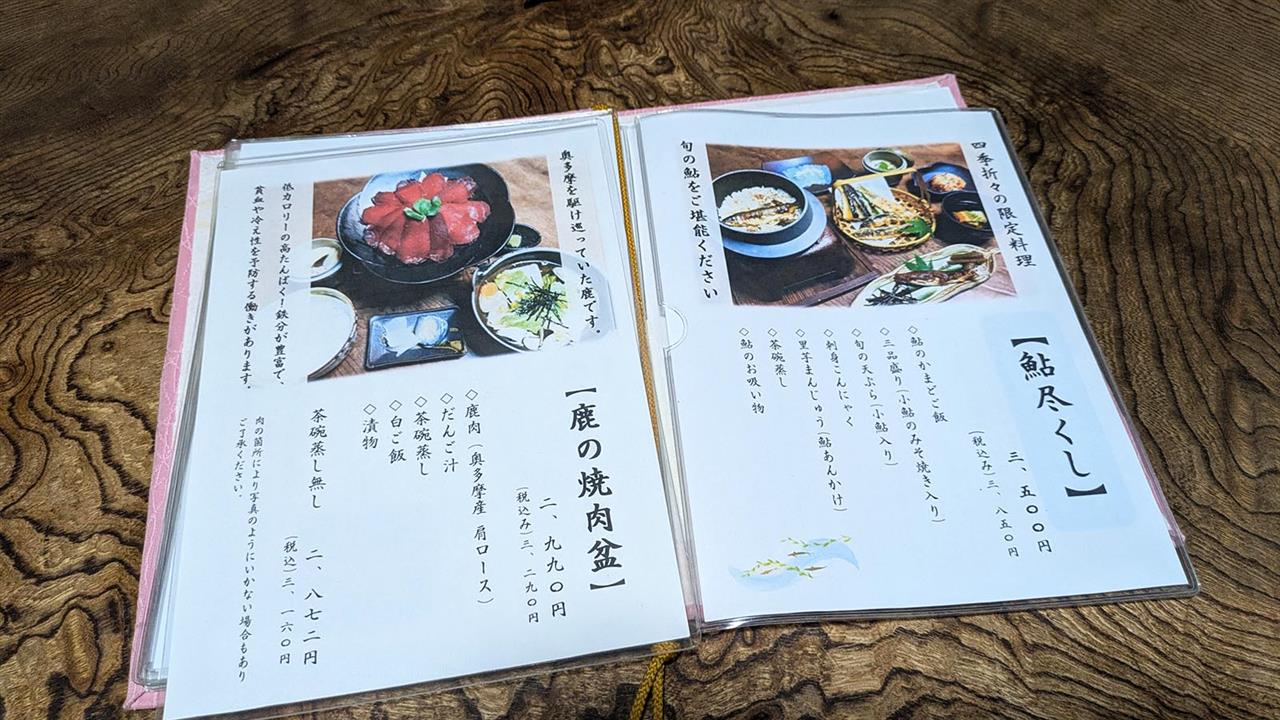 四季折々の限定料理
旬の鮎をご堪能ください
【鮎尽くし】
三、五〇〇円
(税込み)三、八五〇円
◇鮎のかまどご飯
◇三品盛り(小鮎のみそ焼き入り)
◇旬の天ぷら(小鮎入り)
◇刺身こんにゃく
◇里芋まんじゅう(鮎あんかけ)
◇茶碗蒸し
◇鮎のお吸い物
奥多摩を駆け巡っていた鹿です。
低カロリーの高たんぱく!鉄分が豊富で、
貧血や冷え性を予防する働きがあります。
【鹿の焼肉盆】
二、九九〇円
(税込み)三、二九〇円
◇鹿肉(奥多摩産 肩ロース)
◇だんご汁
◇茶碗蒸し
◇白ご飯
◇漬物
茶碗蒸し無し 二、八七二円
(税込)三、一六〇円
肉の箇所により写真のようにいかない場合もあり
ご了承ください。